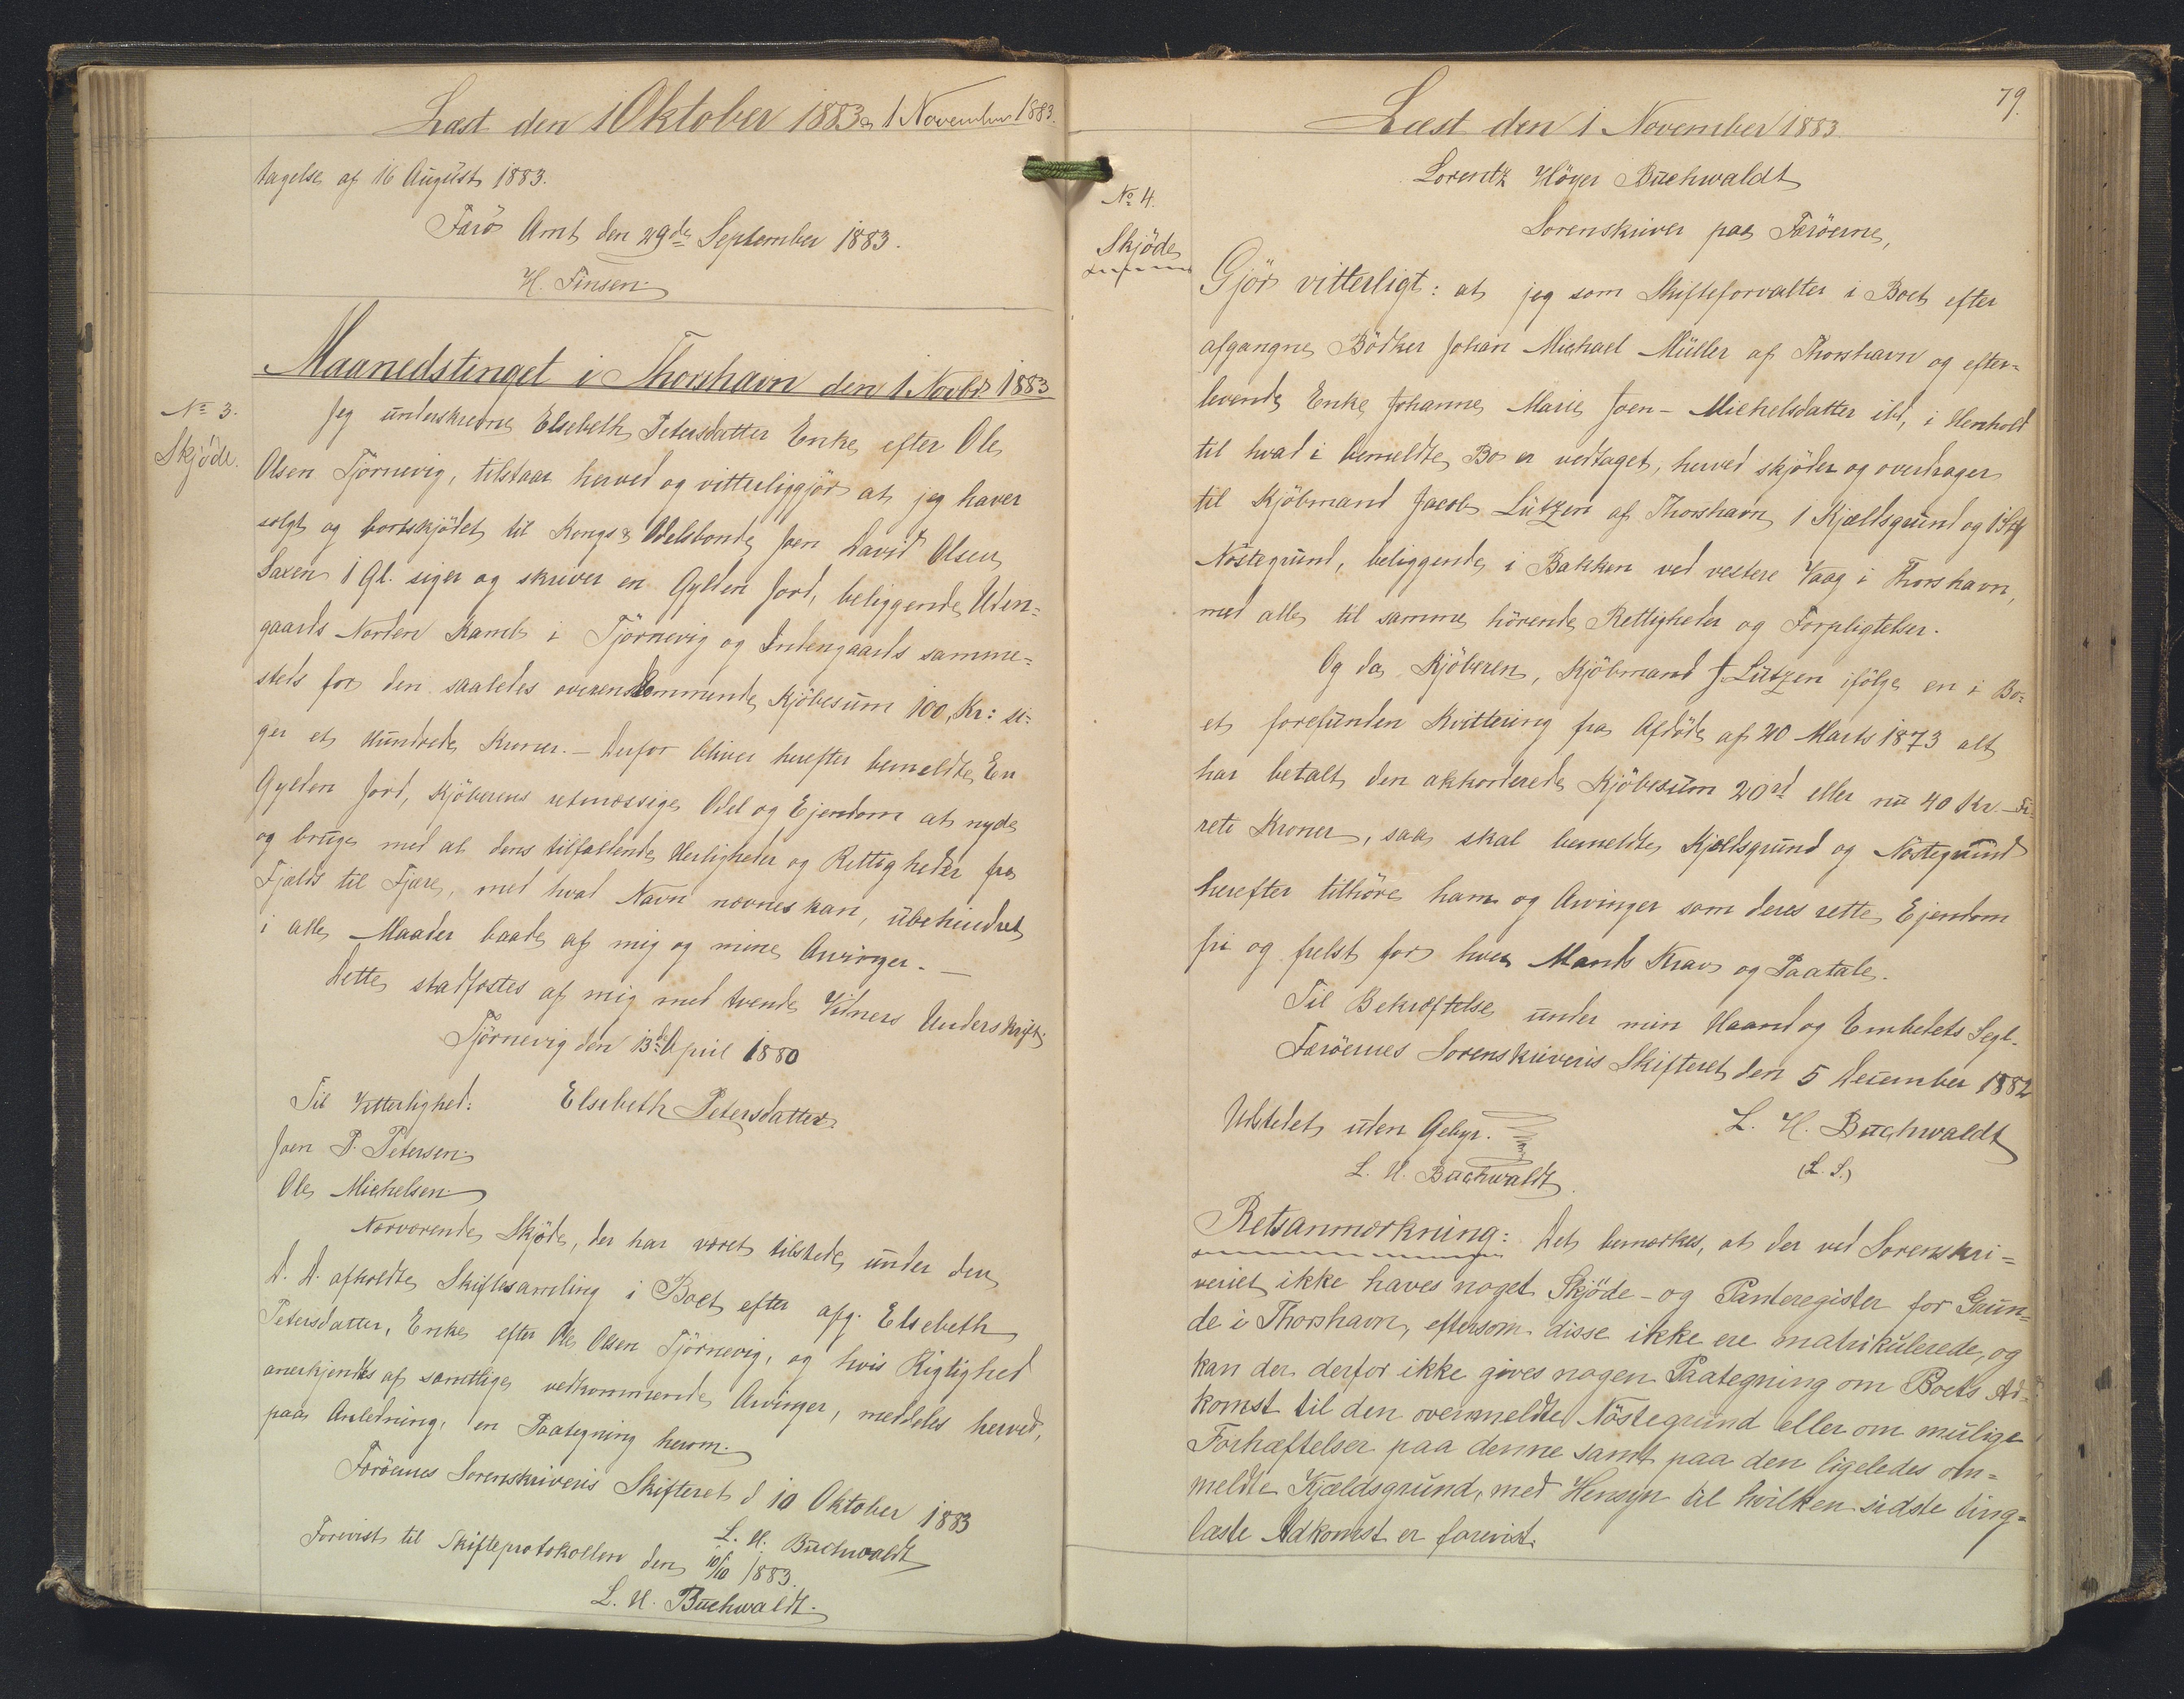 Læst den 1 Oktober 1883 & 1 November 1883.
tagelse af 16 August 1883.
Færö Amt den 29de September 1883.
H. Finsen.
Maanedstinget i Thorshavn den 1 Novbr 1883
No 3.
Skjöde.
Jeg underskrevne Elsebeth Petersdatter Enke efter Ole
Olsen Tjörnevig, tilstaar herved og vitterliggjör at jeg haver
solgt og bortskjödet til Kongs & Odelsbonde Joen David Olsen
Saxen 1 Gl. siger og skriver en Gylden Jord, beliggende Uden-
gaards Norden Kamb i Tjörnevig og Indengaards samme-
steds for den saaledes overenskommende Kjöbesum 100, Kr: si-
ger et Hundrede Kroner. - Derfor bliver herefter bemeldte En
Gylden Jord, Kjöberens retmæssige Odel og Ejendom at nyde
og bruge med al dens tilfaldende Herligheder og Rettigheder fra
Fjælds til Fjære, med hvad Navn nævnes kan, ubehindret
i alle Maader baade af mig og mine Arvinger. -
Dette stadfæstes af mig med tvende Vidners Underskrift.
Tjörnevig den 13de April 1880
Til Vitterlighed: Elsebeth Petersdatter.
Joen P. Petersen.
Ole Michelsen.
Nærværende Skjöde, der har været tilstede under den
D. D. afholdte Skiftesamling i Boet efter afg. Elsebeth
Petersdatter, Enke efter Ole Olsen Tjörnevig, og hvis Rigtighed
anerkjendtes af samtlige vedkommende Arvinger, meddeles herved,
paa Anledning, en Paategning herom.
Færöernes Sorenskriveris Skifteret d 10 Oktober 1883
L. H. Buchwaldt
Forevist til Skifteprotokollen den 10/10 1883.
L. H. Buchwaldt.
79.
Læst den 1 November 1883
No 4.
Skjöde
Lorentz Höyer Buchwaldt
Sorenskriver paa Færöerne,
Gjör vitterligt: at jeg som Skifteforvalter i Boet efter
afgangne Bödker Johan Michael Müller af Thorshavn og efter-
levende Enke Johanne Marie Joen-Michelsdatter ibd, i Henhold
til hvad i bemeldte Bo er vedtaget, herved skjöder og overdrager
til Kjöbmand Jacob Lützen af Thorshavn 1 Kjældsgrund og 1
Nöstegrund, beliggende i Bakken ved vestere Vaag i Thorshavn,
med alle til samme hörende Rettigheder og Forpligtelser.
Og da Kjöberen, Kjöbmand J. Lützen ifölge en i Bo-
et forefunden Kvittering fra Afdöde af 20 Marts 1873 alt
har betalt den akkorderede Kjöbesum 20 rd eller nu 40 Kr. - Fi-
reti Kroner, saa skal bemeldte Kjældsgrund og Nöstegrund
herefter tilhöre ham og Arvinger som deres rette Ejendom
fri og frelst for hver Mands Krav og Paatale.
Til Bekræftelse under min Haand og Embedets Segl.
Færöernes Sorenskriveris Skifteret den 5 December 1882
Udstedet uden Gebyr. L. H. Buchwaldt
L. H. Buchwaldt. (L. S.)
Retsanmærkning: Det bemærkes, at der ved Sorenskri-
veriet ikke haves noget Skjöde- og Panteregister for Grun-
de i Thorshavn, eftersom disse ikke ere matrikulerede, og
kan der derfor ikke gives nogen Paategning om Boets Ad-
komst til den ovenmeldte Nöstegrund eller om mulige
Forhæftelser paa denne samt paa den ligeledes om-
meldte Kjældsgrund, med Hensyn til hvilken sidste ting-
læste Adkomst er forevist.